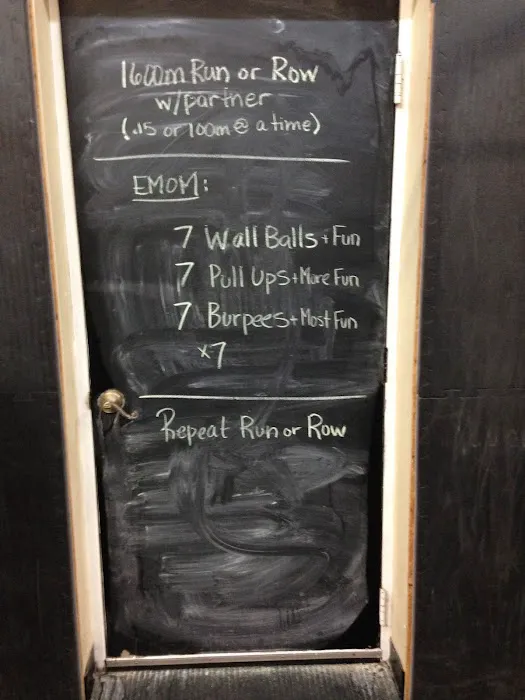 1600m Run or Row
w/partner
(.15 or 100m @ a time)
EMOM:
7 Wall Balls + Fun
7 Pull Ups + More Fun
7 Burpees + Most Fun
x7
Repeat Run or Row